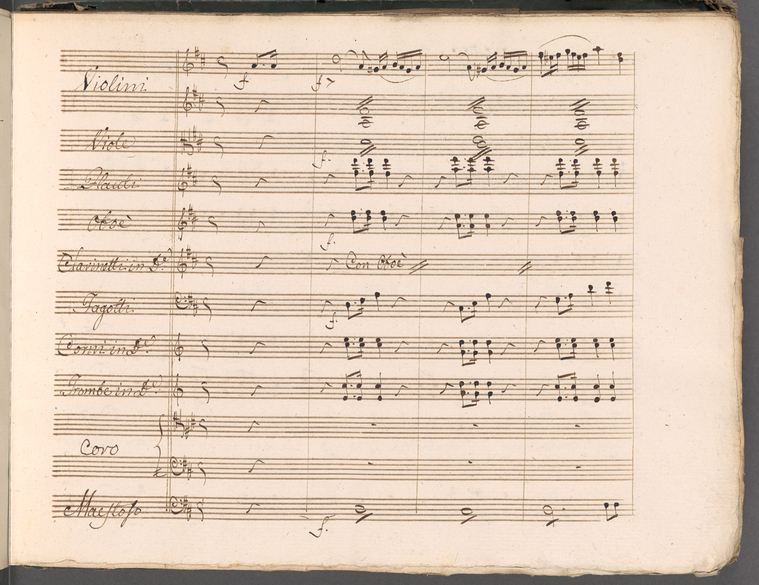 Violini
f
f
Viole
f.
Flauti
Oboè
f.
Clarinetti in D.
Con Oboè
Fagotti
f.
Corni in D.
Trombe in D.
Coro
Maestoso
f.